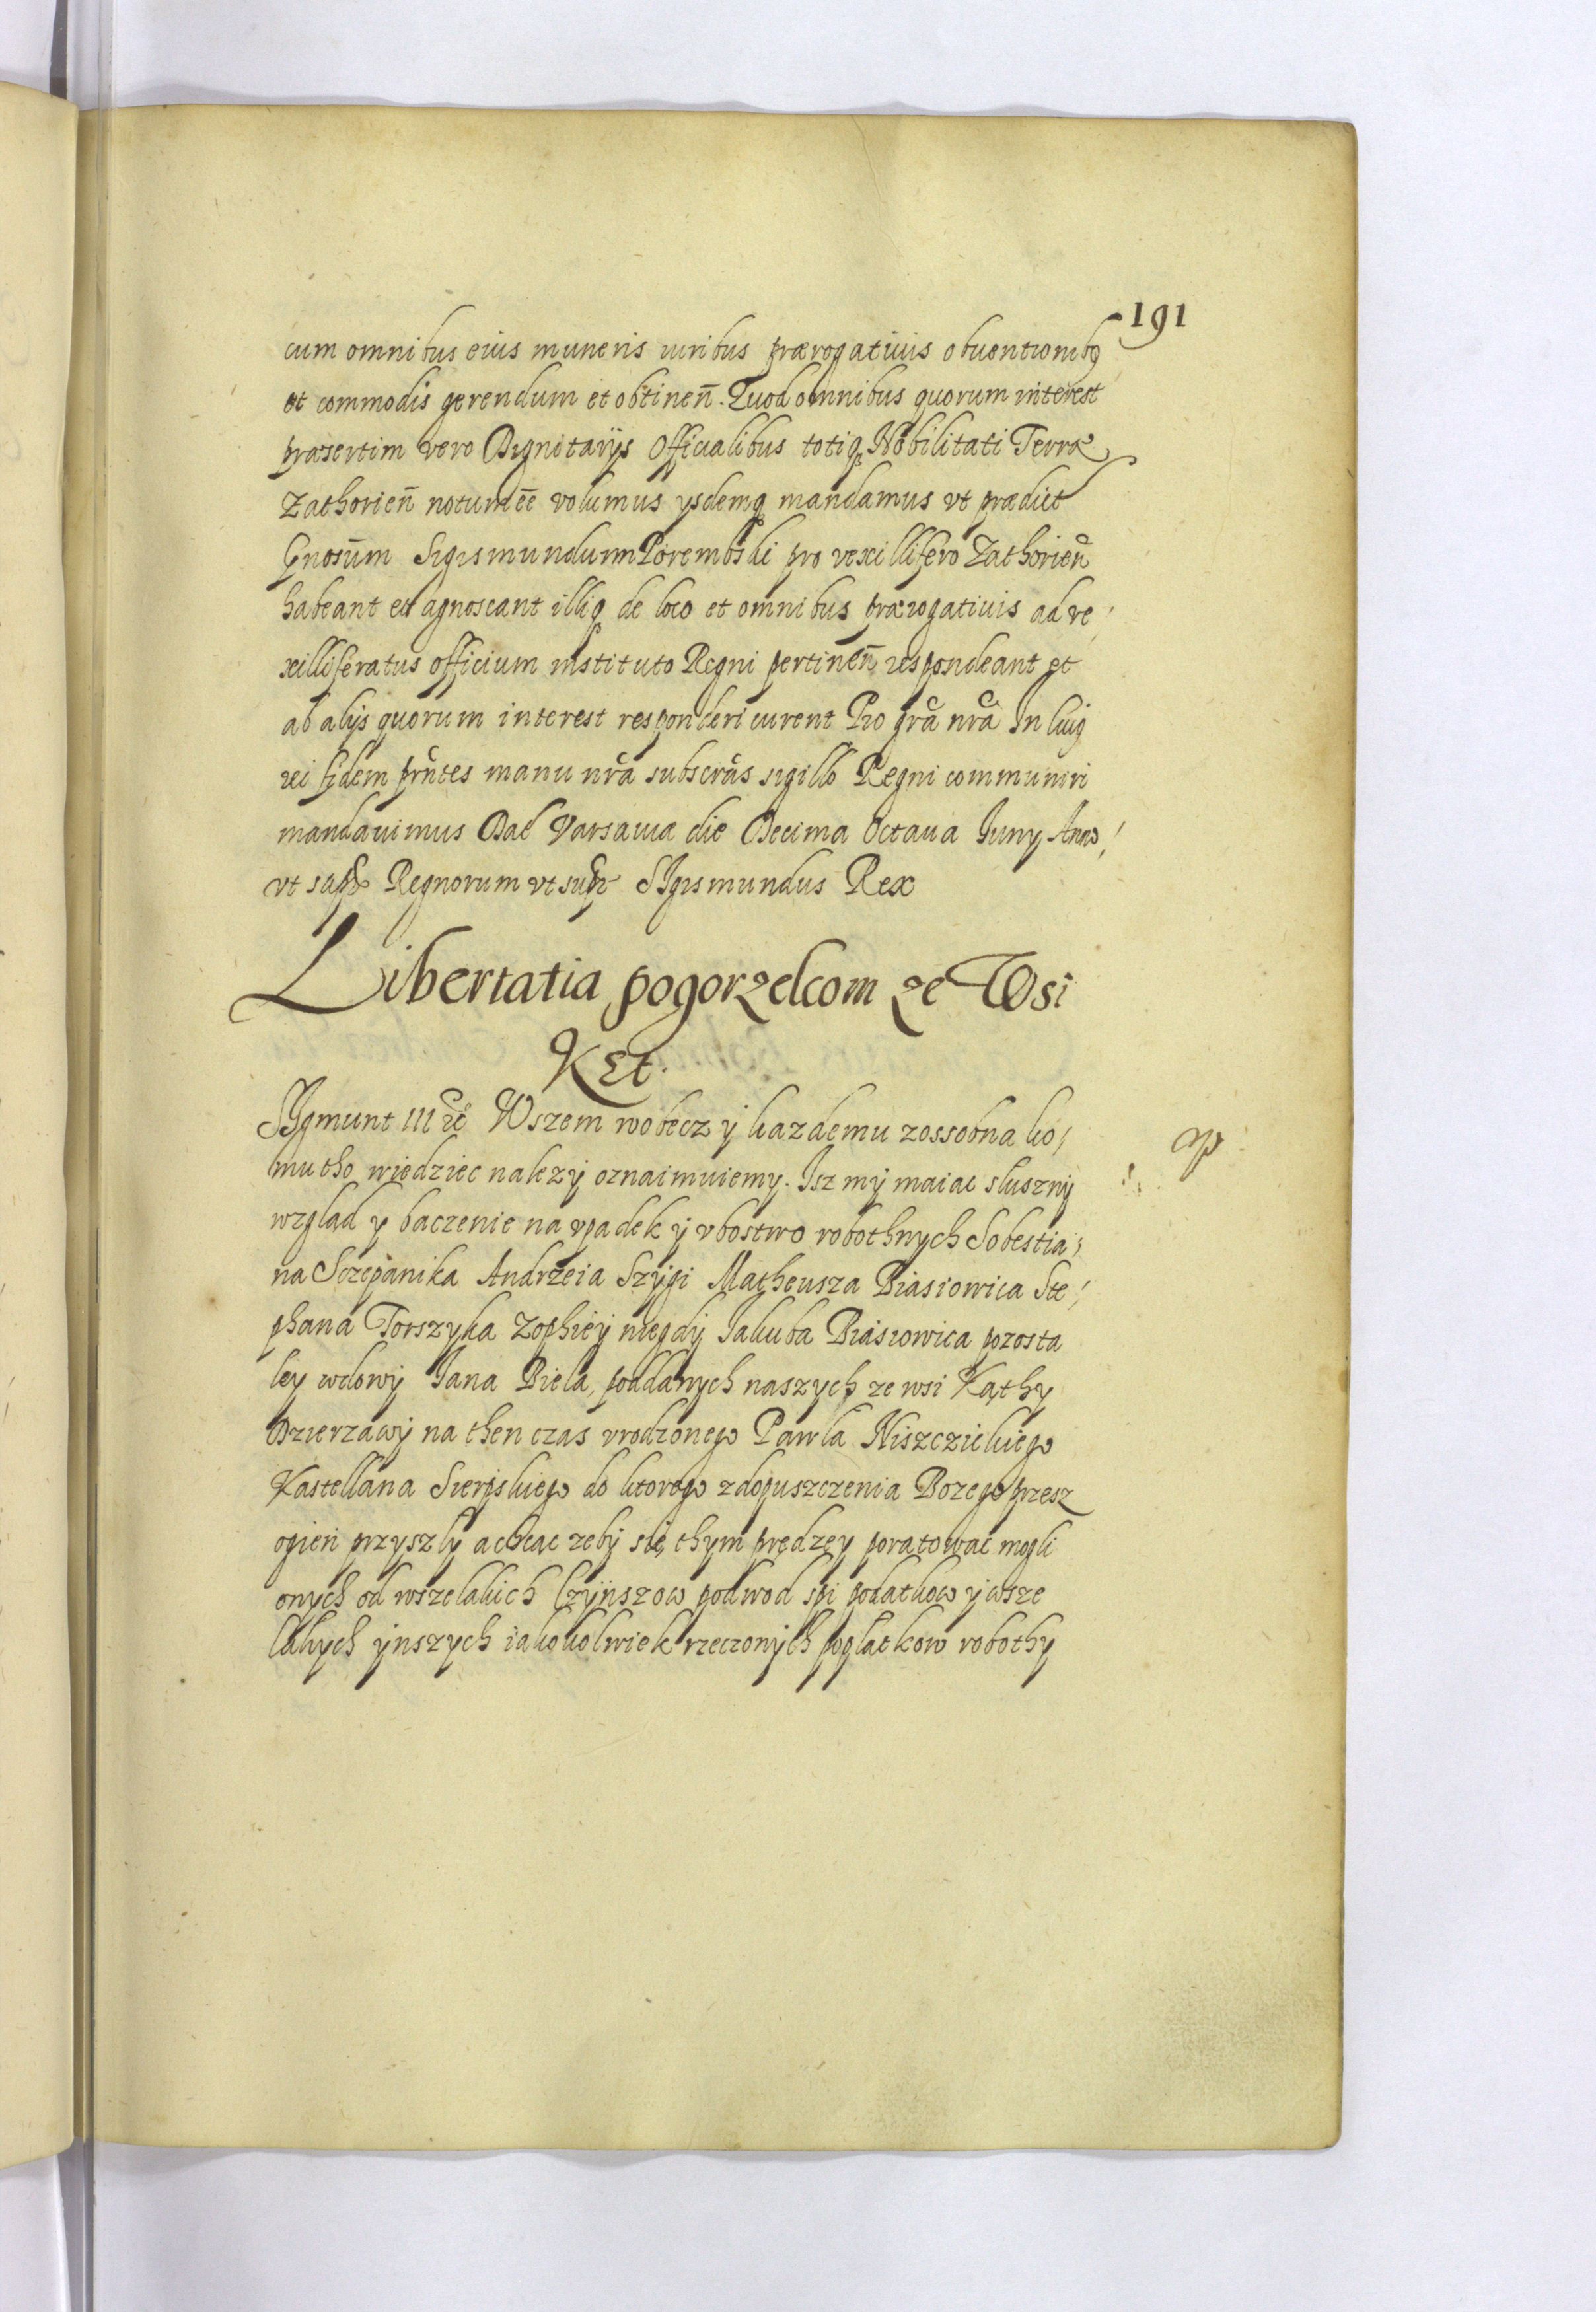 191
cum omnibus eius muneris iuribus prærogatiuis obuentionibq
et commodis gerendum et obtineñ. Quod omnibus quorum interest
præsertim vero Dignitarijs Officialibus totiq Nobilitati Terræ
Zathorieñ notum ēē volumus ysdemq mandamus vt prædict
Gnosum Sigismundum Porembski pro vexillifero Zathorieñ
habeant et agnoscant illiq de loco et omnibus prærogatiuis ad ve,
xilliferatus officium instituto Regni pertineñ respondeant et
ab alijs quorum interest responderi curent Pro gra nra In huiq
rei fidem prntes manu nra subscras sigillo Regni communiri
mandauimus Dat Varsauiæ die Decima Octaua Iuny Anno,
vt supr Regnorum vt supr Sigismundus Rex
Libertatia pogorzelcom ze Wsi
Ket.
Sygmunt III etc Wszem wobecz ÿ kazdemu zossobna ko,
mu tho wiedziec nalezÿ oznaimuiemy. Isz mÿ maiac slusznÿ
wzglad y baczenie na vpadek ÿ vbostwo robothnych Sobestia,
na Sczepanika Andrzeia Szÿgi Matheusza Biasiowica Ste,
phana Torszyka Zophiéÿ niegdÿ Iakuba Biasiowica pozosta
ley wdowÿ Iana Biela, poddanych naszych ze wsi Kąthy
Dzierzawÿ na then czas vrodzonego Pawla Niszczickiego
Kastellana Sierpskiego do ktorego zdopuszczenia Bozego przesz
ogień przyszly a chcac zebÿ sie thym prędzey poratowac mogli
onych od wszelakich Czÿnszow podwod spi podatkow ÿ wsze
lakych ÿnszych iakokolwiek rzeczonÿch poplatkow robothy